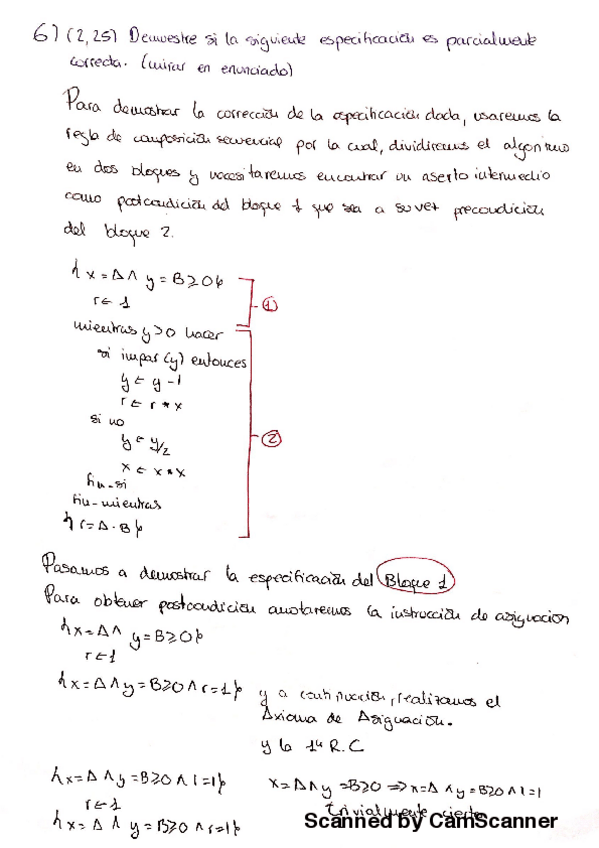 6) (2,25) Demuestre si la siguiente especificación es parcialmente
correcta. (mirar en enunciado)
Para demostrar la corrección de la especificación dada, usaremos la
regla de composición secuencial por la cual, dividiremos el algoritmo
en dos bloques y necesitaremos encontrar un aserto intermedio
como postcondición del bloque 1 que sea a su vez precondición
del bloque 2.
{x = A ∧ y = B ≥ 0}
r ← 1
①
mientras y > 0 hacer
si impar(y) entonces
y ← y - 1
r ← r * x
si no
②
y ← y/2
x ← x * x
fin-si
fin-mientras
{r = A · B}
Pasamos a demostrar la especificación del Bloque 1
Para obtener postcondición anotaremos la instrucción de asignación
{x = A ∧ y = B ≥ 0}
r ← 1
{x = A ∧ y = B ≥ 0 ∧ r = 1} y a continuación, realizamos el
Axioma de Asignación.
y la 1ª R.C
{x = A ∧ y = B ≥ 0 ∧ 1 = 1} x = A ∧ y = B ≥ 0 ⇒ x = A ∧ y = B ≥ 0 ∧ 1 = 1
r ← 1 trivialmente cierto
{x = A ∧ y = B ≥ 0 ∧ r = 1}
Scanned by CamScanner